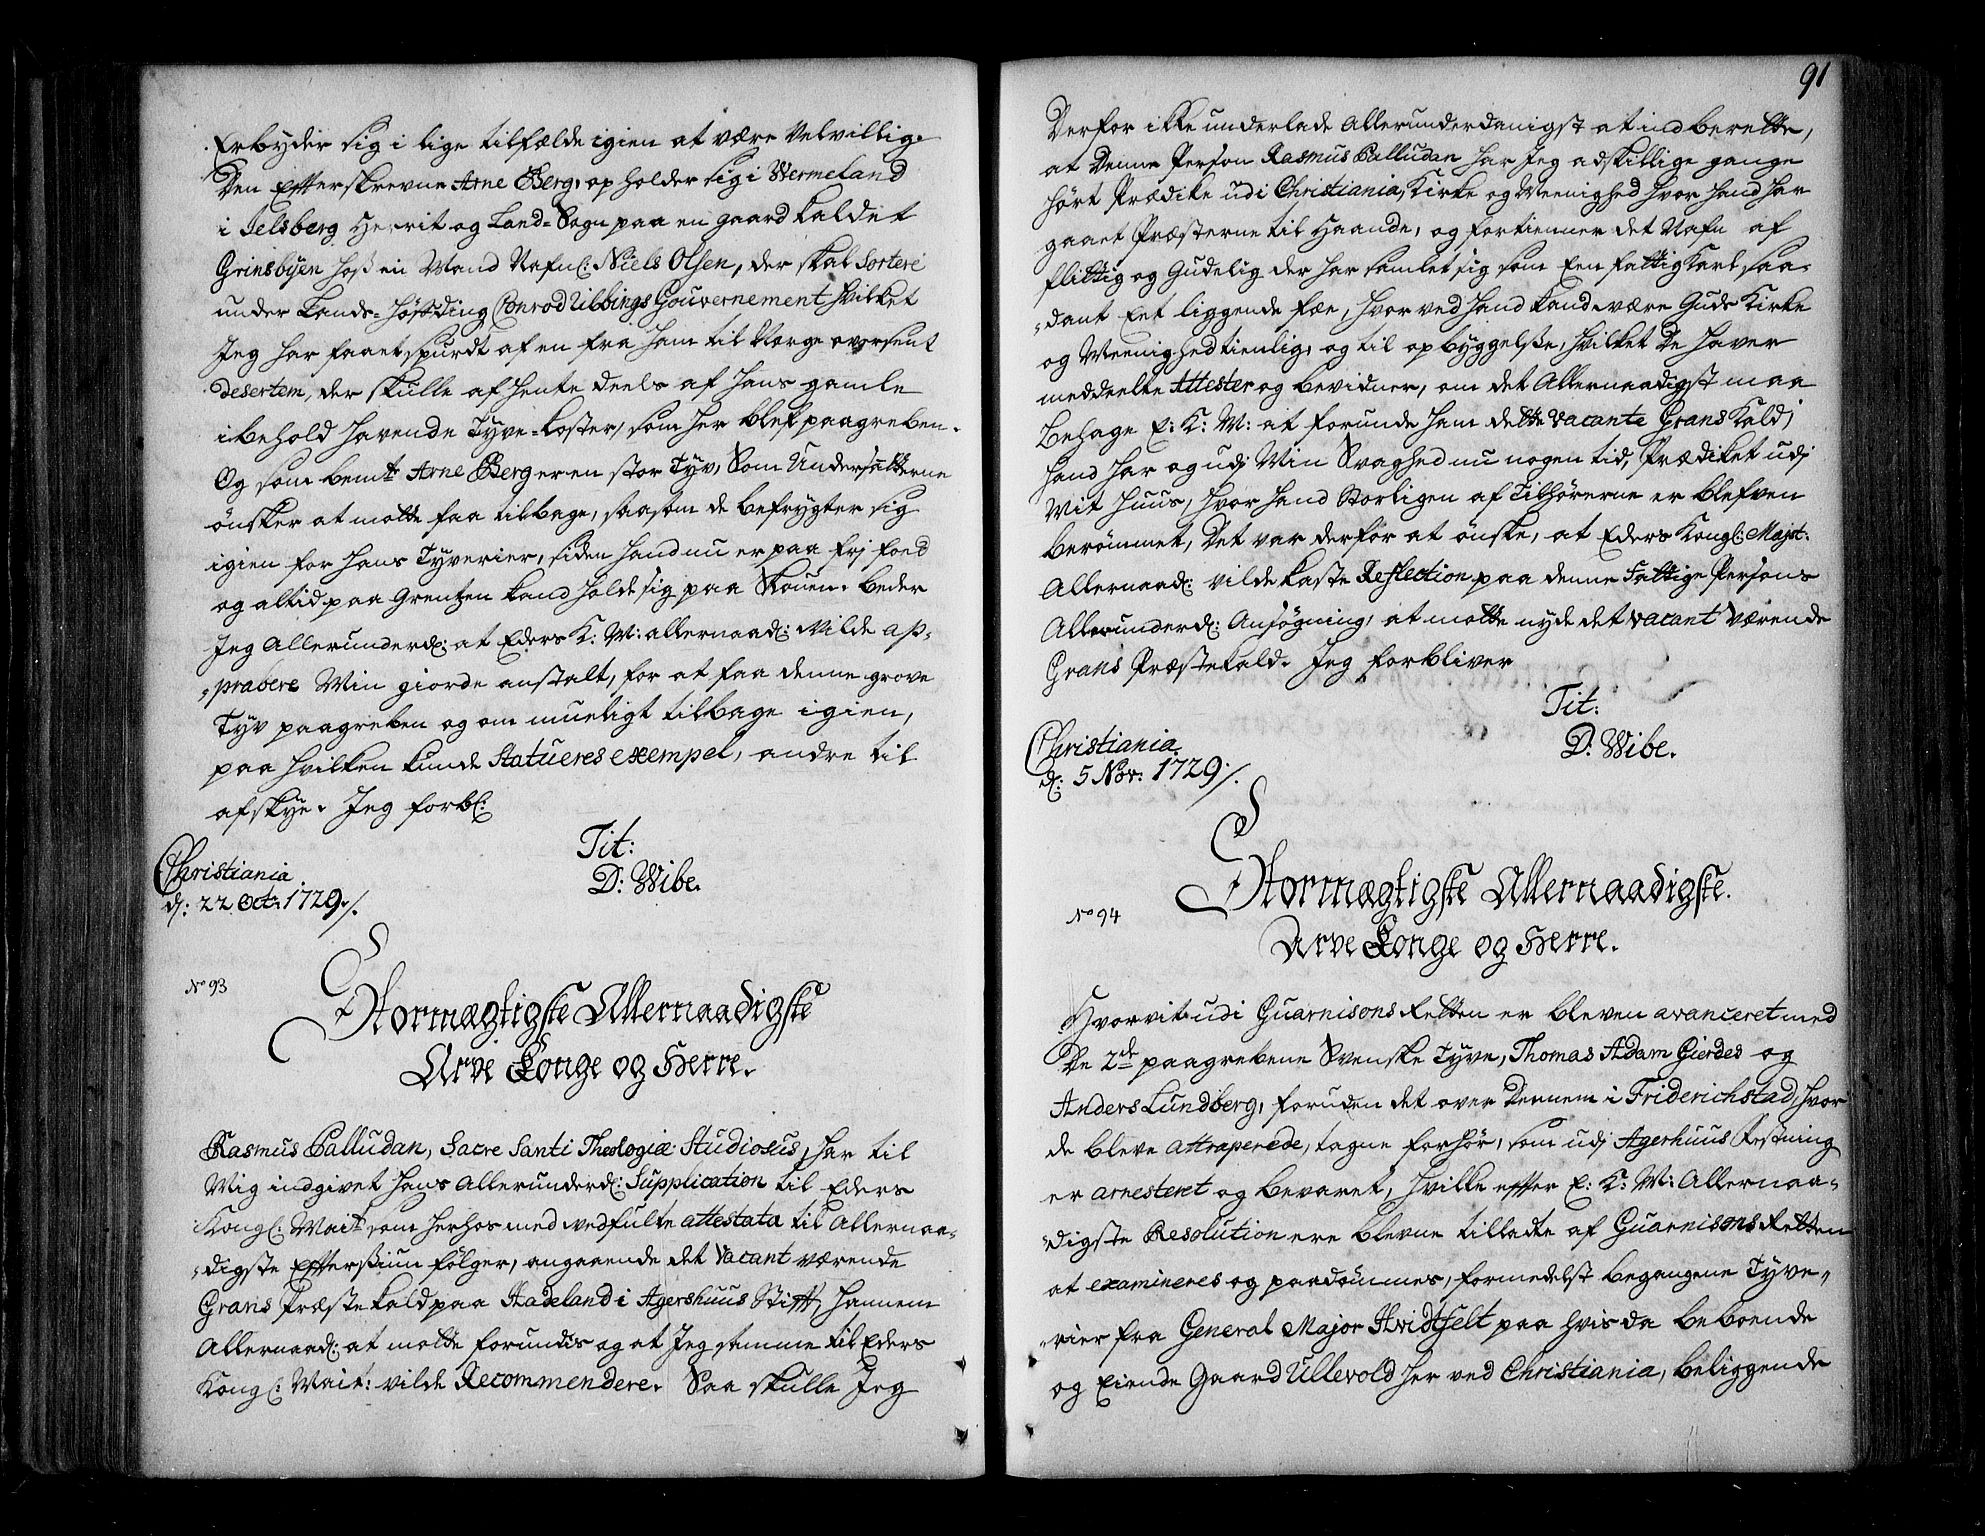 Erbyder sig i lige tilfælde igien at være Velvillig.
Den Efterskrevne Arne Berg, opholder sig i Wermeland
i Jelsberg Herrit og Land-Sogn paa en gaard kaldet
Grinsbÿen hoß en Mand Nafnl: Niels Olsen, der skal Sortere
under Lands-Höfding Conrod Ribbings Gouvernement hvilket
Jeg har faaet spurdt af en fra ham til Norge oversent
Desertem, der skulle afhente deels af hans gamle
i behold havende Tyve-koster, som her blef paagreben.
Og som bemte Arne Berg er en stor Tyv, Som Undersatterne
ønsker at motte faa tilbage, saasom de befrygter sig
igien for hans Tyverier, siden hand nu er paa frj foed
og altid paa Grentzen kand holde sig paa Skouen. beder
Jeg Allerunderd: at Eders K: M: allernaad: Vilde ap-
-probere Min giorde anstalt, for at faa denne grove
Tyv paagreben og om mueligt tilbage igien,
paa hvilken kunde Statueres exempel, andre til
afskye. Jeg forbl:
Tit:
D: Wibe.
Christiania
d: 22 Oct: 1729 ./.
No 93
Stormægtigste Allernaadigste
Arve Konge og Herre.
Rasmus Palludan, Sacre Santi Theologiæ Studiosus, har til
Mig indgivet hans Allerunderd: Supplication til Eders
Kongl: Mait: som herhos med vedfulte attestata til Allernaa-
-digste Eftersiun følger, angaaende det Vacant værende
Grans Præstekald paa Hadeland i Agershuus Stift, hannem
Allernaad: at motte forundes og at Jeg samme til Eders
Kongl: Mait: vilde Recommendere. Saa skulle Jeg
91
Derfor ikke underlade Allerunderdanigst at indberette,
at Denne Person Rasmus Palludan har Jeg adskillige gange
hört Prædike udi Christiania Kirke og Meenighed hvor hand har
gaaet Præsterne til Haande, og fortienner det Nafn af
flittig og Gudelig der har samlet sig som Een fattig karl saa-
-dant Eet liggende fæe, hvorved hand kand være Guds Kirke
og Meenighed tienlig, og til opbyggelße, hvilket De haver
meddeelte Attester og bevidner, om det Allernaadigst maa
behage E: K: M: at forunde ham dette vacante Grans Kald,
hand har og udj Min Svaghed nu nogen tid, Prædiket udj
Mit Huus, hvor hand Storligen af Tilhörerne er blefven
berömmet, Det var derfor at ønske, at Eders Kongl: Majst:
Allernaad: vilde kaste Reflection paa denne Fattige Persons
Allerunderd: Ansögning, at motte nyde det vacant værende
Grans Præstekald. Jeg forbliver
Tit:
D: Wibe.
Christiania
d: 5 Nov: 1729 ./.
No 94
Stormægtigste Allernaadigste.
Arve Konge og Herre.
Hvorvit udi Guarnisons Retten er bleven avanceret med
De 2de paagrebene Svenske Tyve, Thomas Adam Gierdes og
Anders Lundberg, foruden det over Dennem i Friderichstad, hvor
de bleve attraperede, tagne forhør, som udj Agerhuus Festning
er arrestert og bevaret, hvilke efter E: K: M: Allernaa-
-digste Resolution ere blevne tilladte af Guarnisons Retten
at examineres og paadömmes, formedelst begangene Tyve-
-rier fra General Major Hvidtfelt paa hvis da beboende
og Eiende Gaard Ullevold her ved Christiania, beliggende